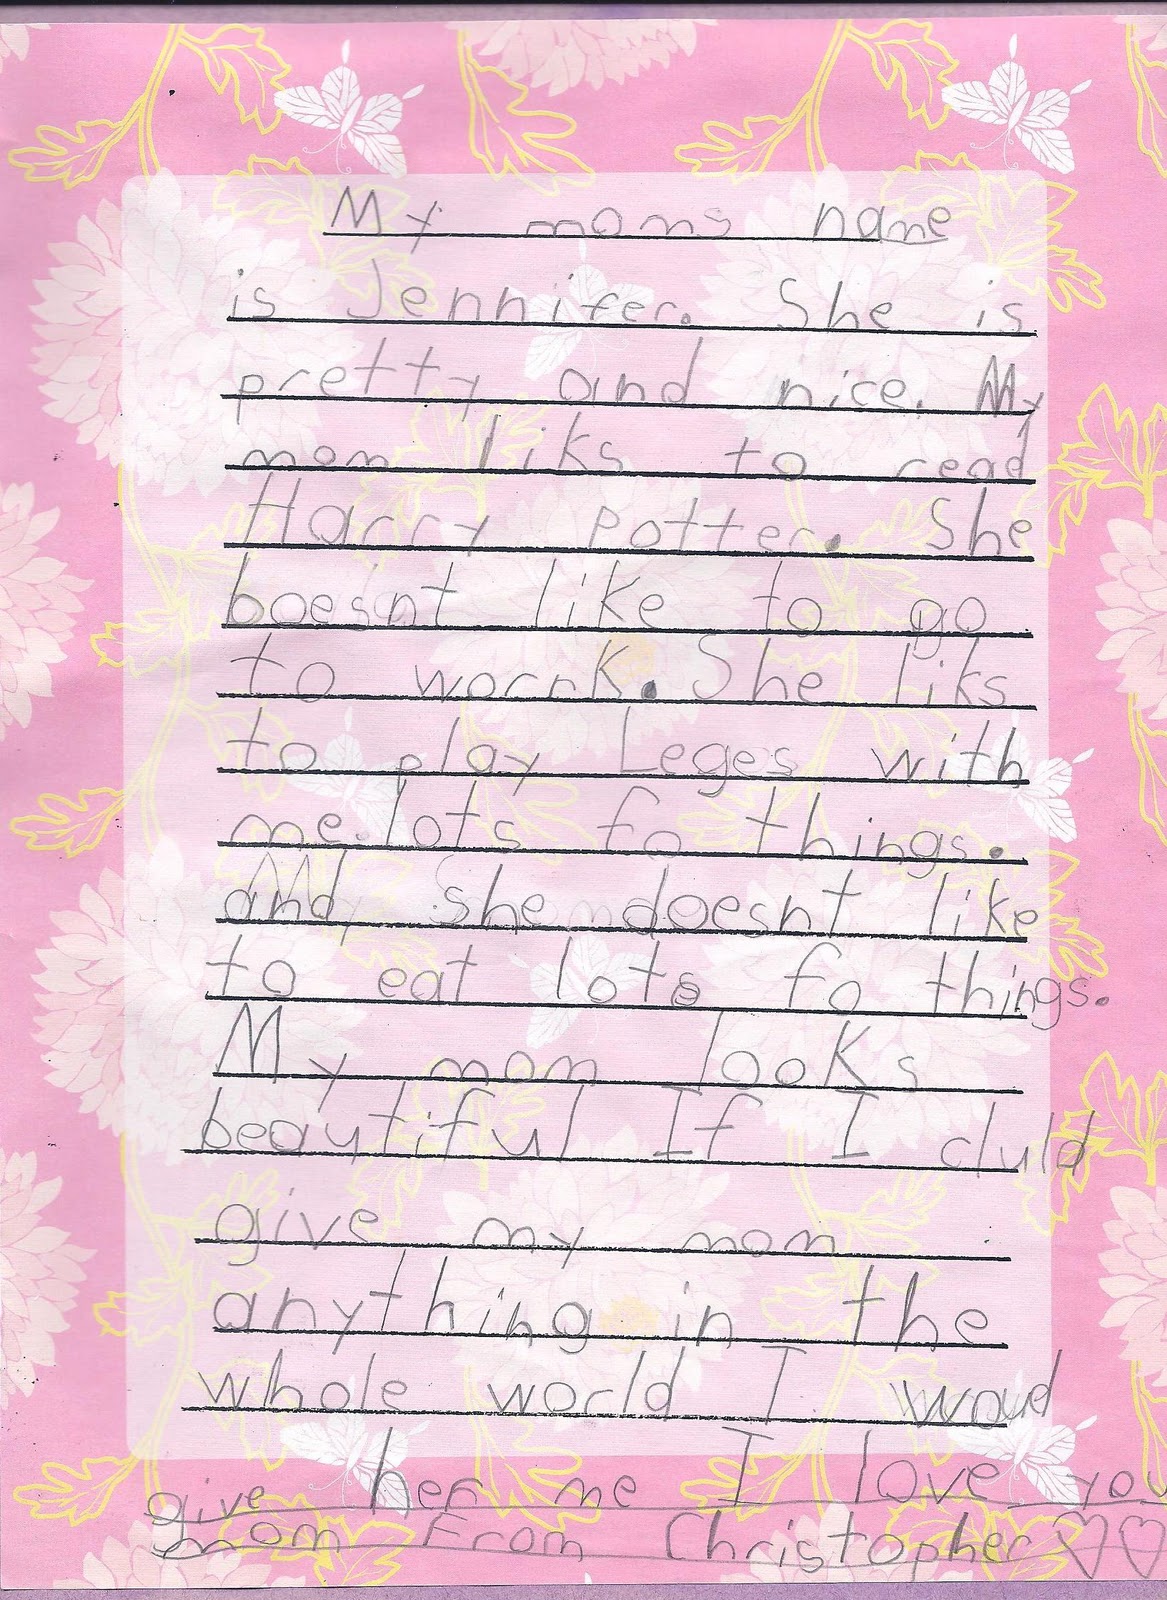 My moms name
is Jennifer. She is
pretty and nice. My
mom liks to read
Harry Potter. She
boesnt like to go
to worrk. She liks
to play Leges with
me. lots fo things.
and she doesnt like
to eat lots fo things.
My mom looks
beautiful If I cluld
give my mom
anything in the
whole world I woud
give her me I love you
mom From Christopher ♡♡